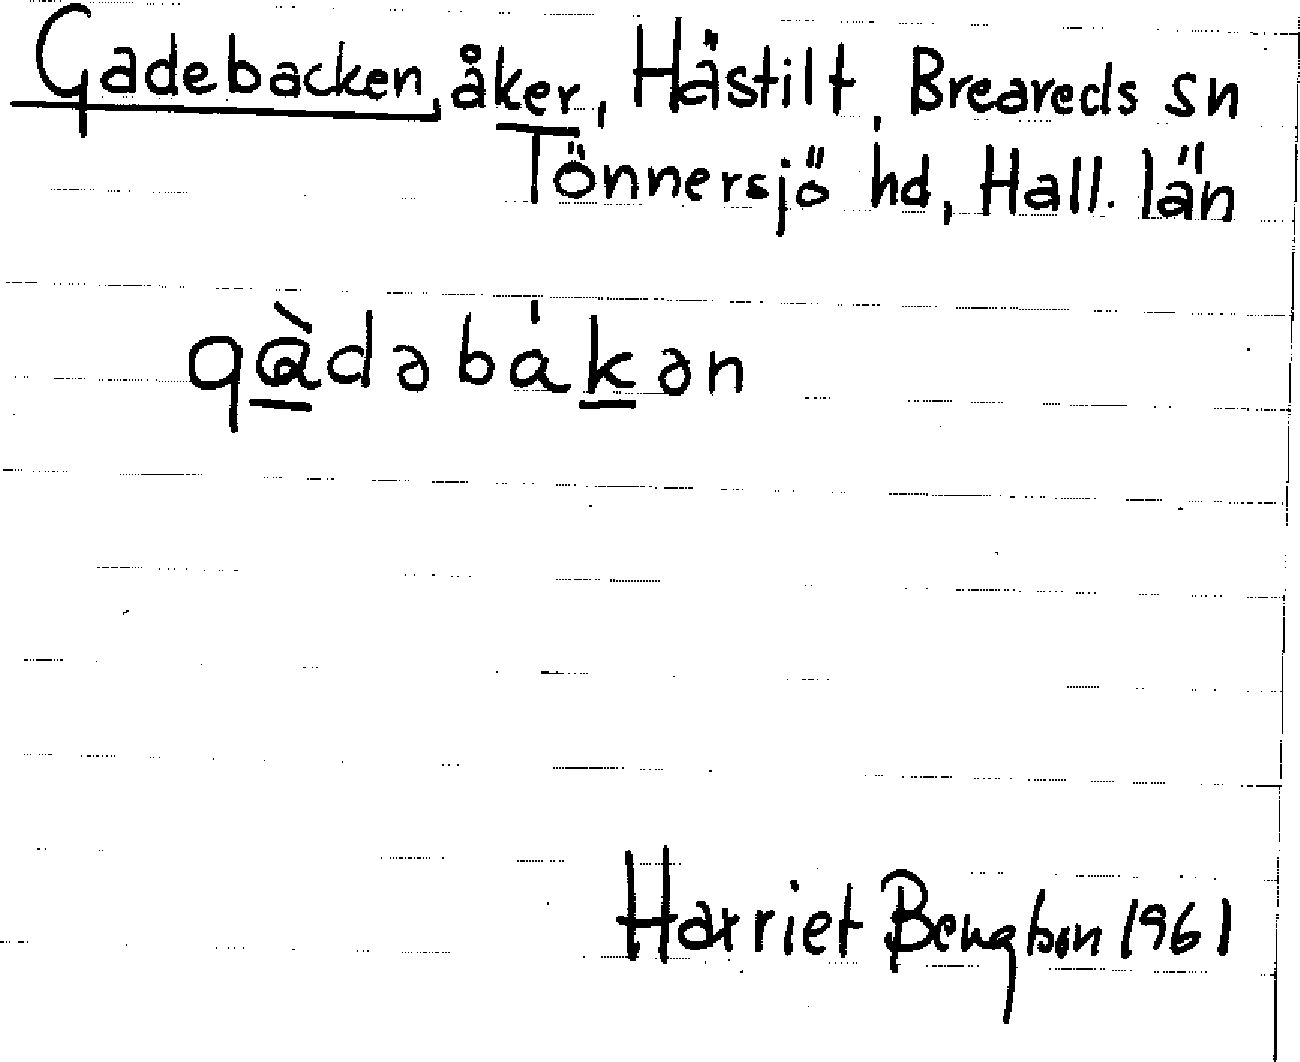 Gadebacken, åker, Håstilt, Breareds sn
Tönnersjö hd, Hall. län
qàdəbákən
Harriet Bengtson 1961